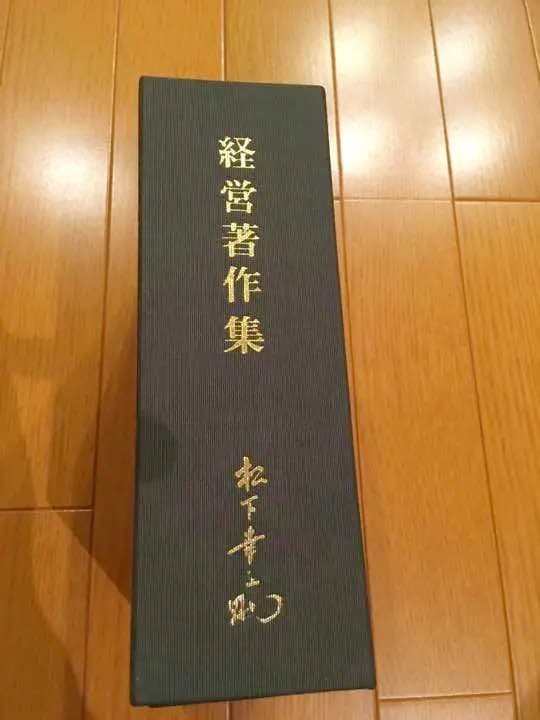 経営著作集
松下幸之助